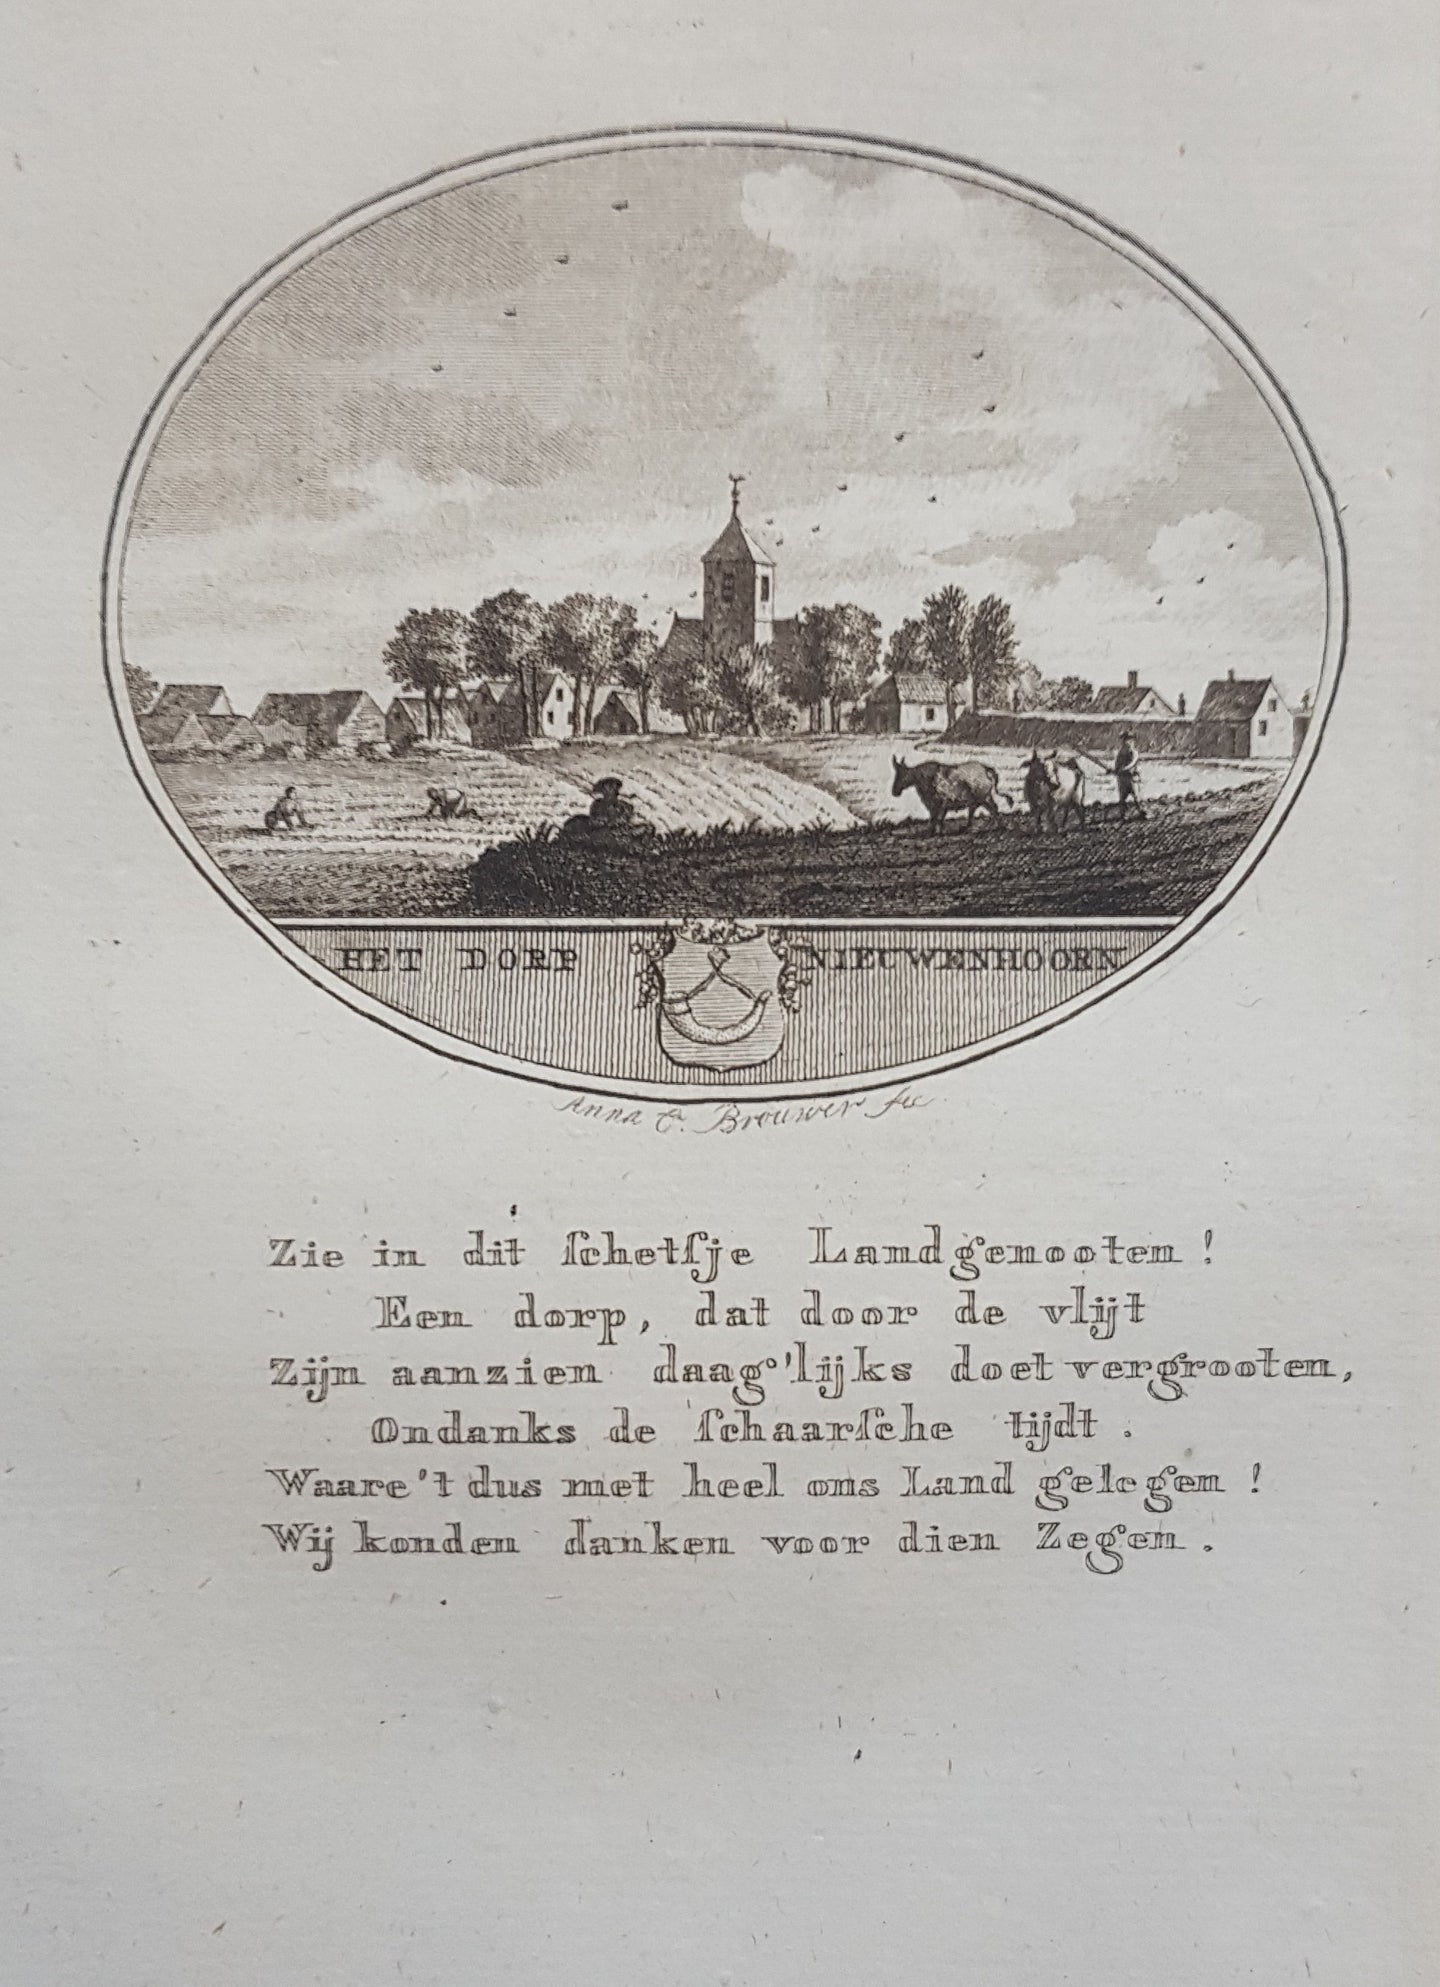 HET DORP NIEUWENHOORN
Anna C. Brouwer fec.
Zie in dit ſchetſje Landgenooten !
Een dorp, dat door de vlijt
Zijn aanzien daag'lijks doet vergrooten,
Ondanks de ſchaarſche tijdt .
Waare 't dus met heel ons Land gelegen !
Wij konden danken voor dien Zegen .